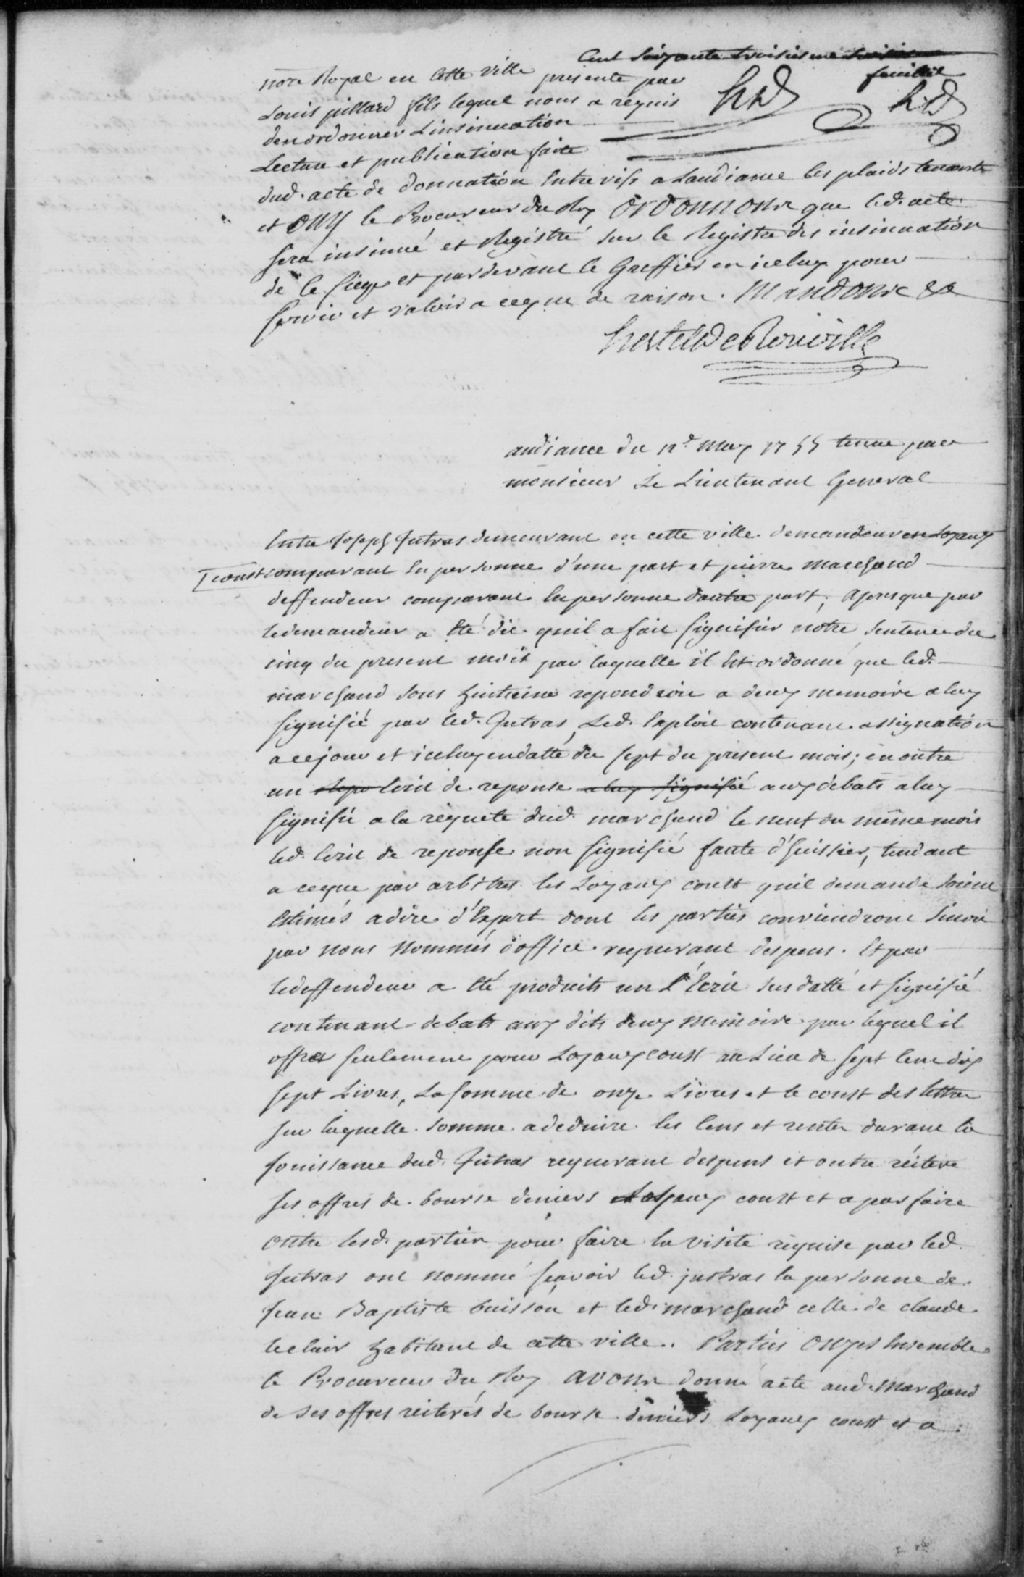 Cent soixante troisieme
feuillet
notre Royal en cette ville présenté par
Louis pillard fils lequel nous a requis
den ordonner Linsinuation
Lecture et publication faite
dud. acte de donnation entre vifs a Laudiance les plaids tenante
et ouy le Procureur du Roy ordonnons que led. acte
sera insinué et Régistré sur le Régistre des insinuation
de ce siege et pardevant le Greffier en iceluy pour
servir et valoir a ceque de raison. Mandons &a
hertel De Rouville
audiance du 12e. may 1755 tenue par
monsieur Le Lieutenant General
Entre Joseph Jutras demeurant en cette ville demandeur en Loyaux
coust comparant en personne d'une part et pierre marchand
deffendeur comparant en personne dautre part, apres que par
ledemandeur a été dit quil a fait signifier notre sentence du
cinq du present mois par laquelle il est ordonné que led.
marchand sous huitaine repondroit a deux memoire a luy
signifié par led. Jutras, Led. Exploit contenant assignation
a cejour et iceluy endatté du sept du present mois; en outre
un Ecrit de reponse a luy signifié aux débats a luy
signifié a la requete dud. marchand le neuf du même mois
led. Ecrit de reponse non signifié faute d'huissier, tendant
a ceque par arbitres les Loyaux coust quil demande soient
Estimés adire d'Expert dont les parties conviendront sinon
par nous Nommés d'office requerant depens. Et par
ledeffendeur a été produits un Ecrit susdatté et signifié
contenant debats aux dits deux memoire par lequel il
offre seulement pour Loyaux coust au Lieu de sept cent dix
sept Livres, La somme de onze Livres et le coust des lettre
sur laquelle somme a deduire les Cens et rente durant la
jouissance dud. Jutras requerant depens et outre réitere
ses offres de bourse deniers Loyaux coust et a parfaire
outre lesd. partier pour faire la visite requise par led.
Jutras ont nommé sçavoir led. justras la personne de
Jean Baptiste buisson et led. marchand celle de claude
leclair habitant de cette ville. Parties ouyes Ensemble
le Procureur du Roy avons donné acte aud. Marchand
de ses offres reiterés de bourse deniers Loyaux coust et a